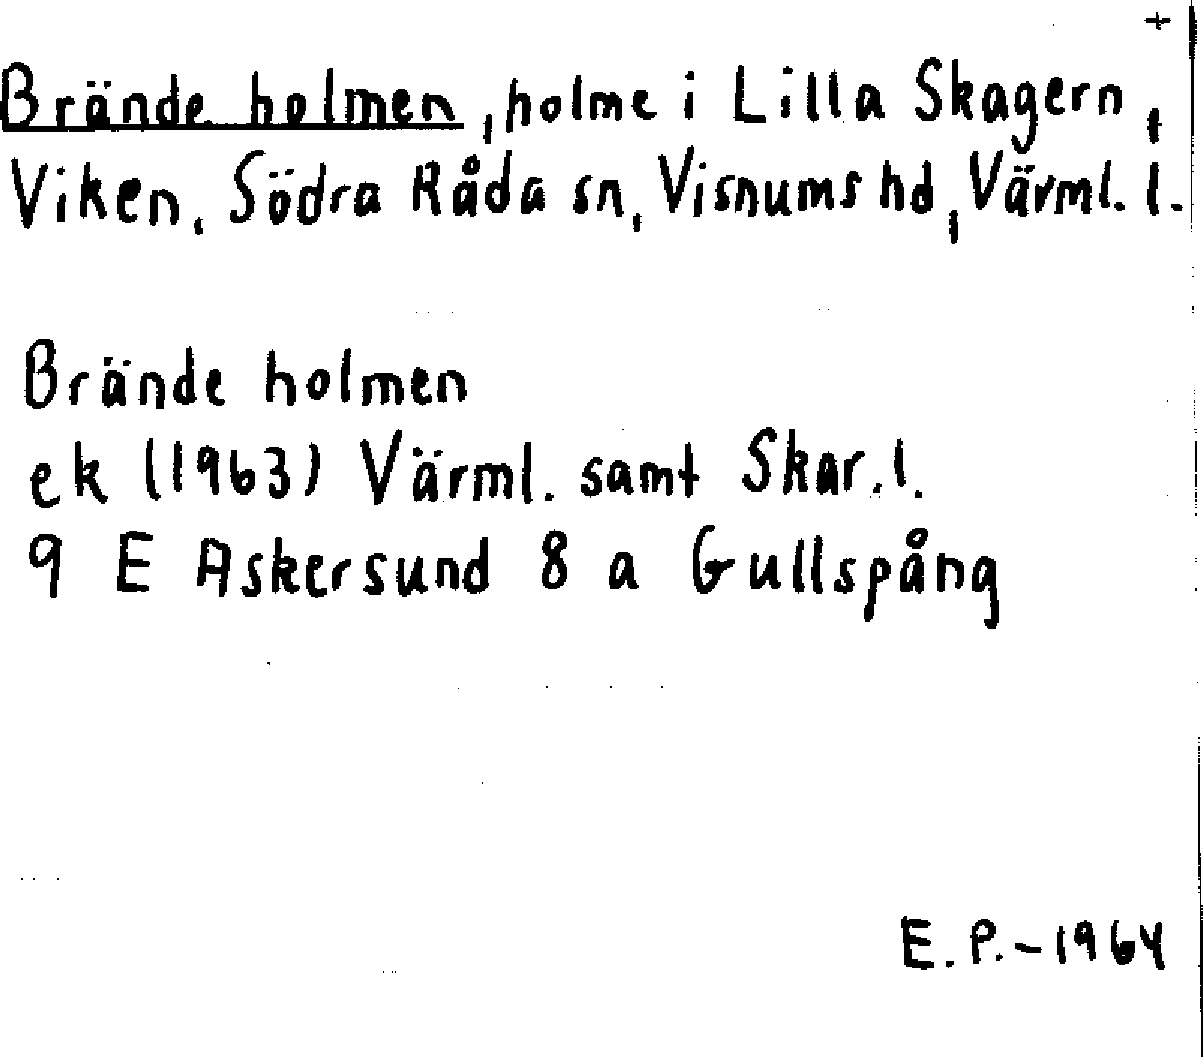 +
Brände holmen, holme i Lilla Skagern,
Viken, Södra Råda sn, Visnums hd, Värml. l.
Brände holmen
ek (1963) Värml. samt Skar. l.
9 E Askersund 8 a Gullspång
E. P. - 1964